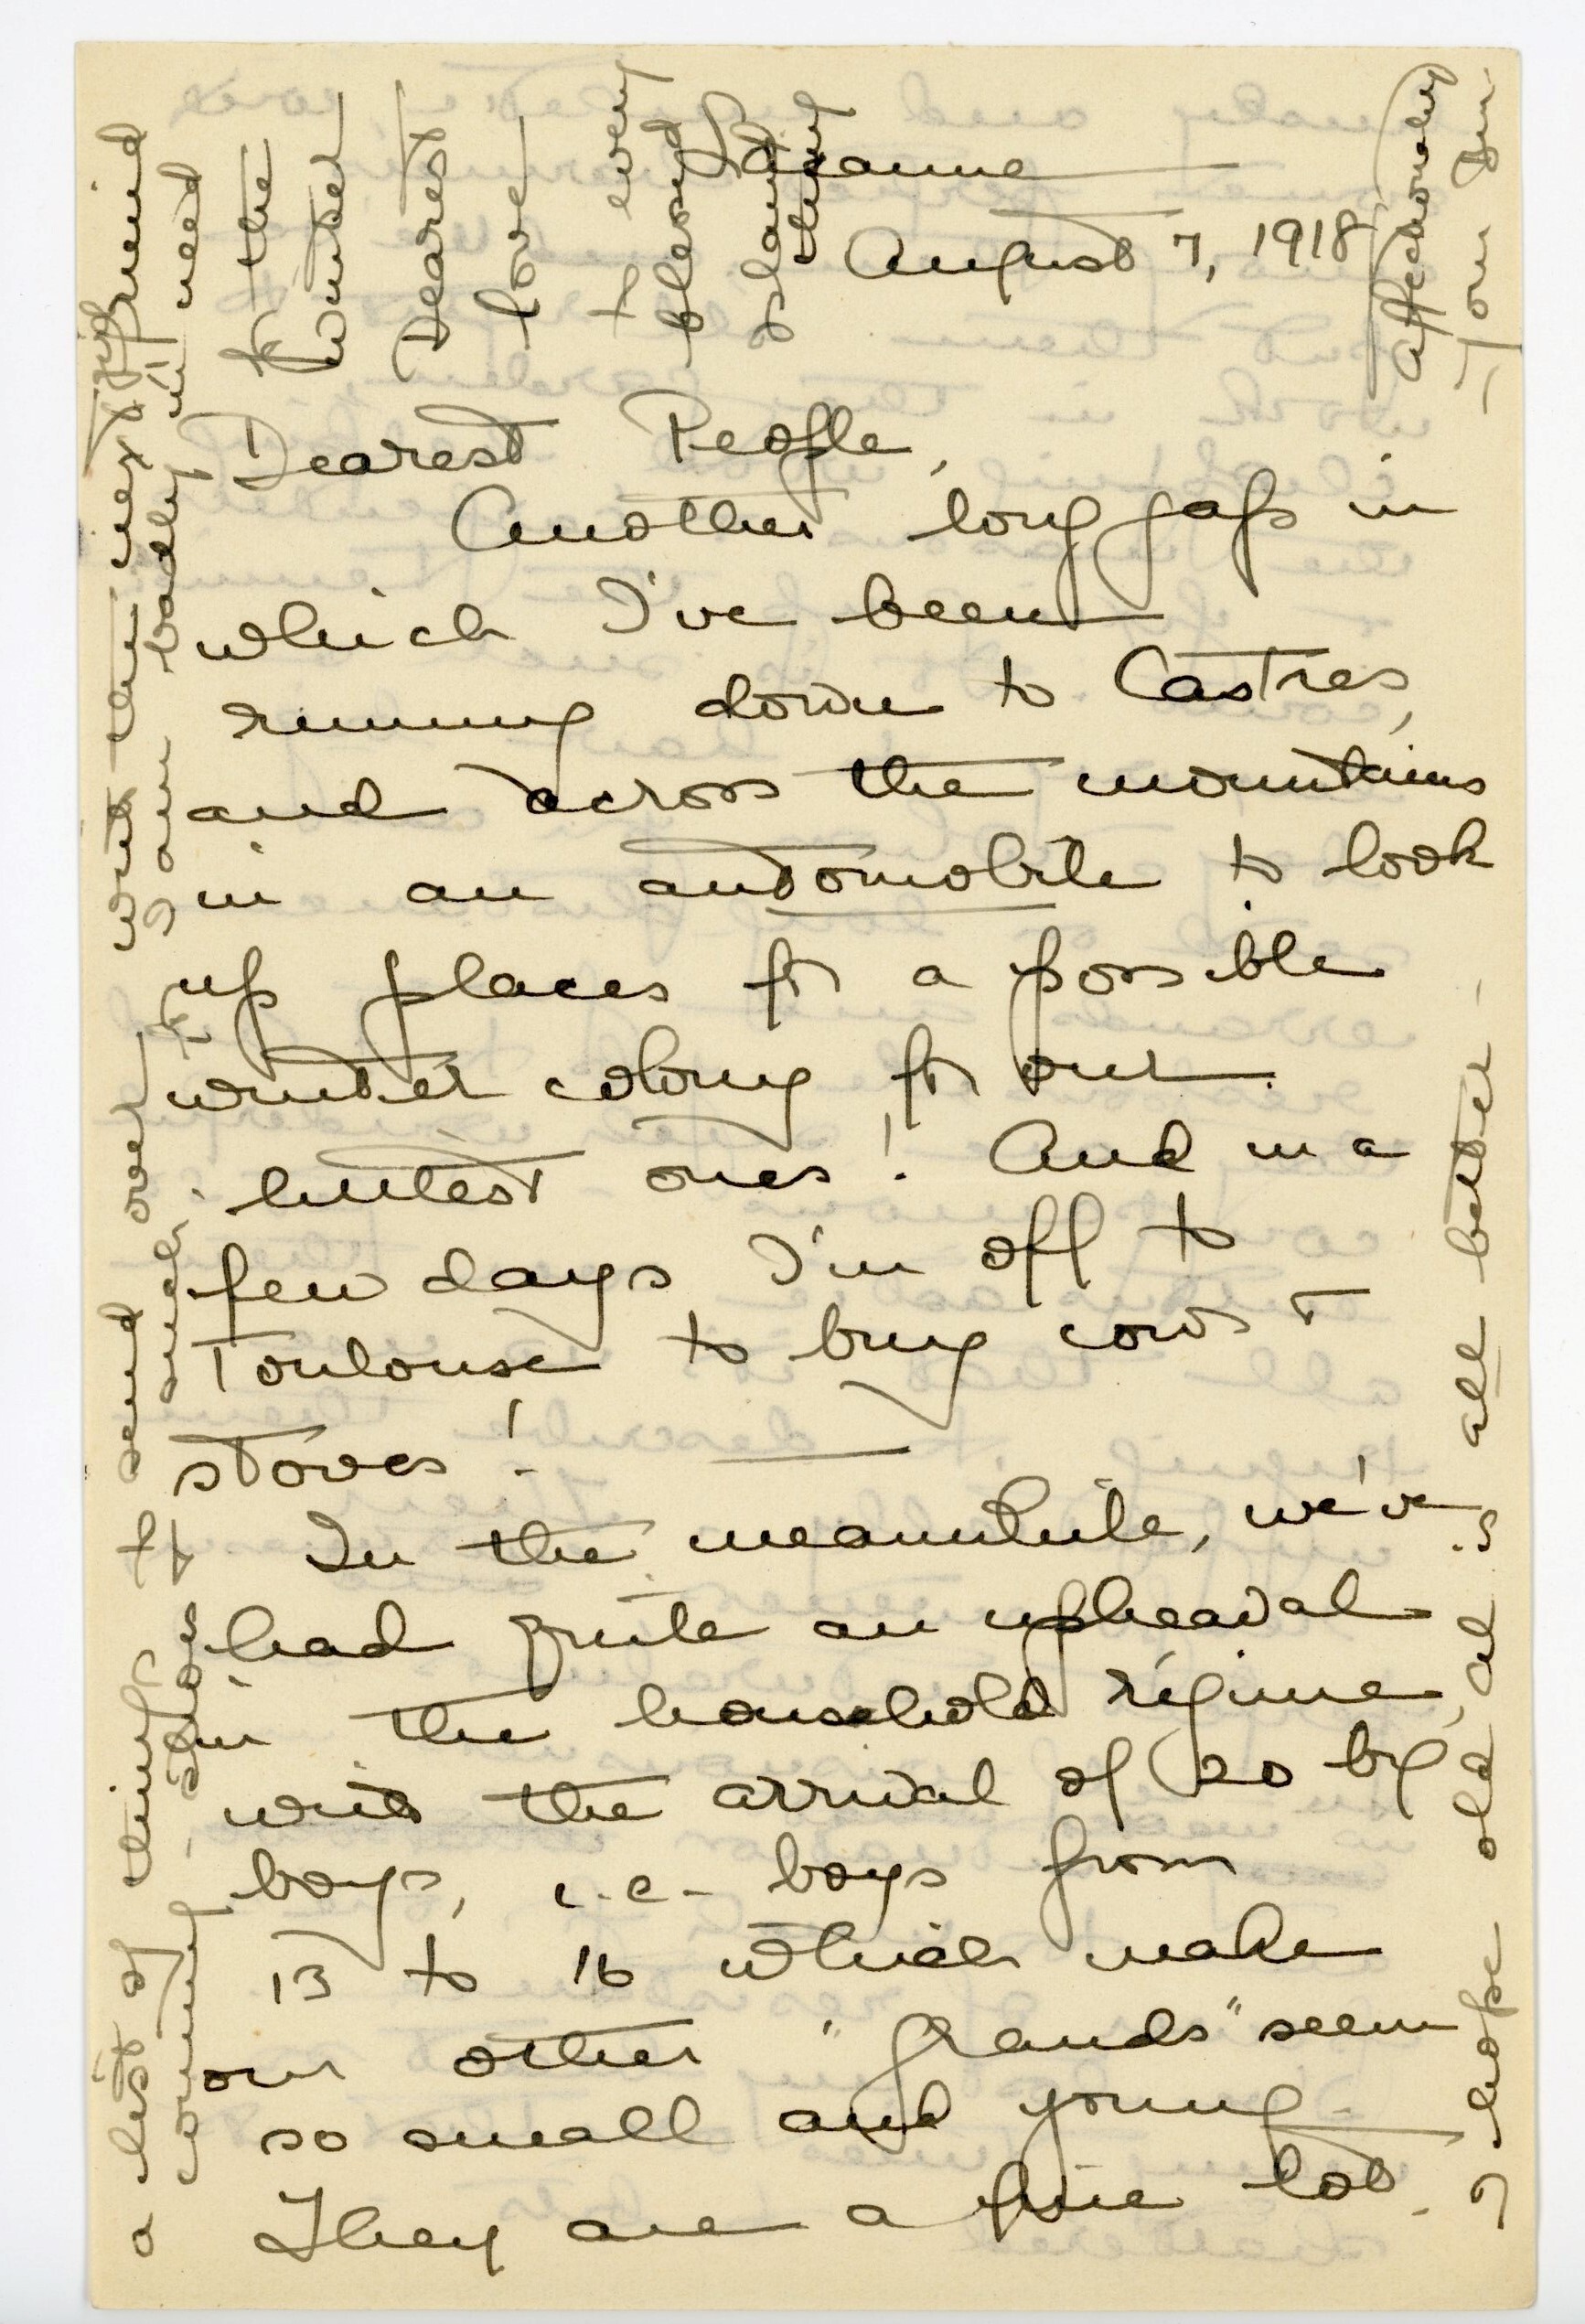 August 7, 1918
Dearest People,
Another long gap in
which I've been
running down to Castres,
and across the mountains
in an automobile to look
up places for a possible
winter colony for our
littlest ones! And in a
few days I'm off to
Toulouse to buy cows &
stoves!
In the meanwhile, we've
had quite an upheaval
in the household régime,
with the arrival of 20 big
boys, i.e. boys from
13 to 16 which make
our other "grands" seem
so small and young.
They are a fine lot.
a list of things to send over
with the next
coming - shoes &
such. I am badly in need
for the
winter
Dearest
love
to every
blessed
thing
I hope old al is all better -
affectionately